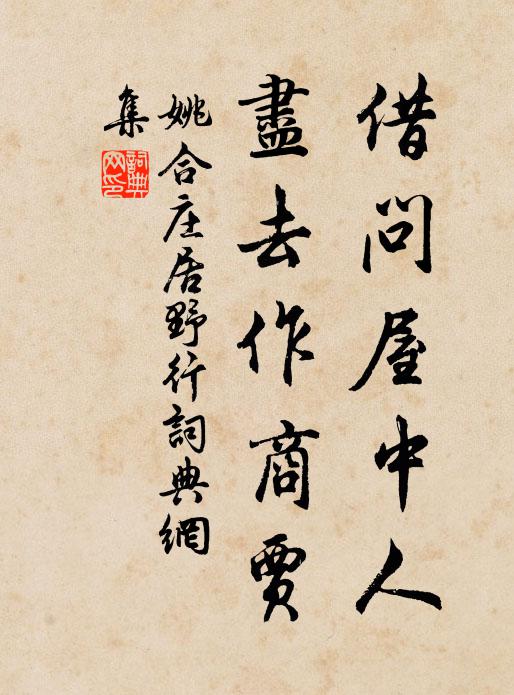 借問屋中人
盡去作商賈
姚合庄居野行詞典網
集
詞典
网印